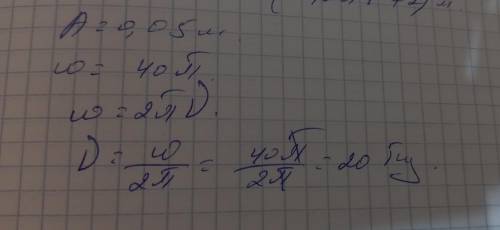 A = 0,05 м.
ω = 40π
ω = 2πν.
ν = ω/2π = 40π/2π = 20 Гц.